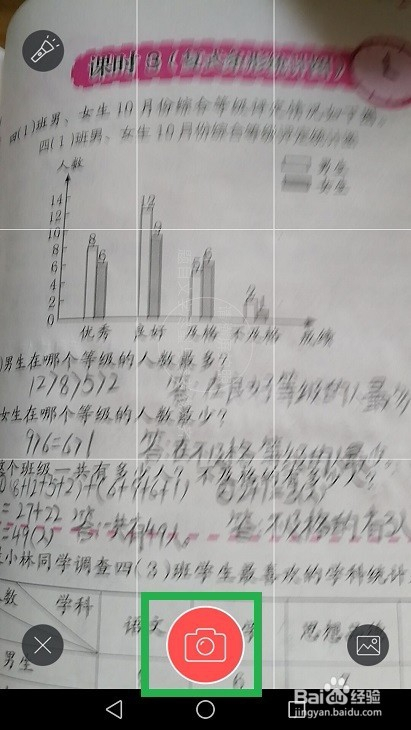 课时 3 (复式条形统计图)
四(1)班男、女生10月份综合等级评定情况如下图。
四(1)班男、女生10月份综合等级评定统计图
人数
男生
女生
14
12
10
8
6
4
2
0
8 6 12 9 5 6 2 1
优秀 良好 及格 不及格 成绩
男生在哪个等级的人数最多?
12>8>5>2 答:在良好等级的人最多
女生在哪个等级的人数最少?
9>6=6>1 答:在不及格等级的人最少
整个班级一共有多少人? 不及格的有多少人?
(8+12+5+2)+(6+9+6+1) ②2+1=3(人)
=27+22 答:一共有49人。
=49(人) 答:不及格的有3人
是小林同学调查四(3)班学生最喜欢的学科统计
人数 学科 语文 学 思想品德
男生 6
Baidu经验
jingyan.baidu.com